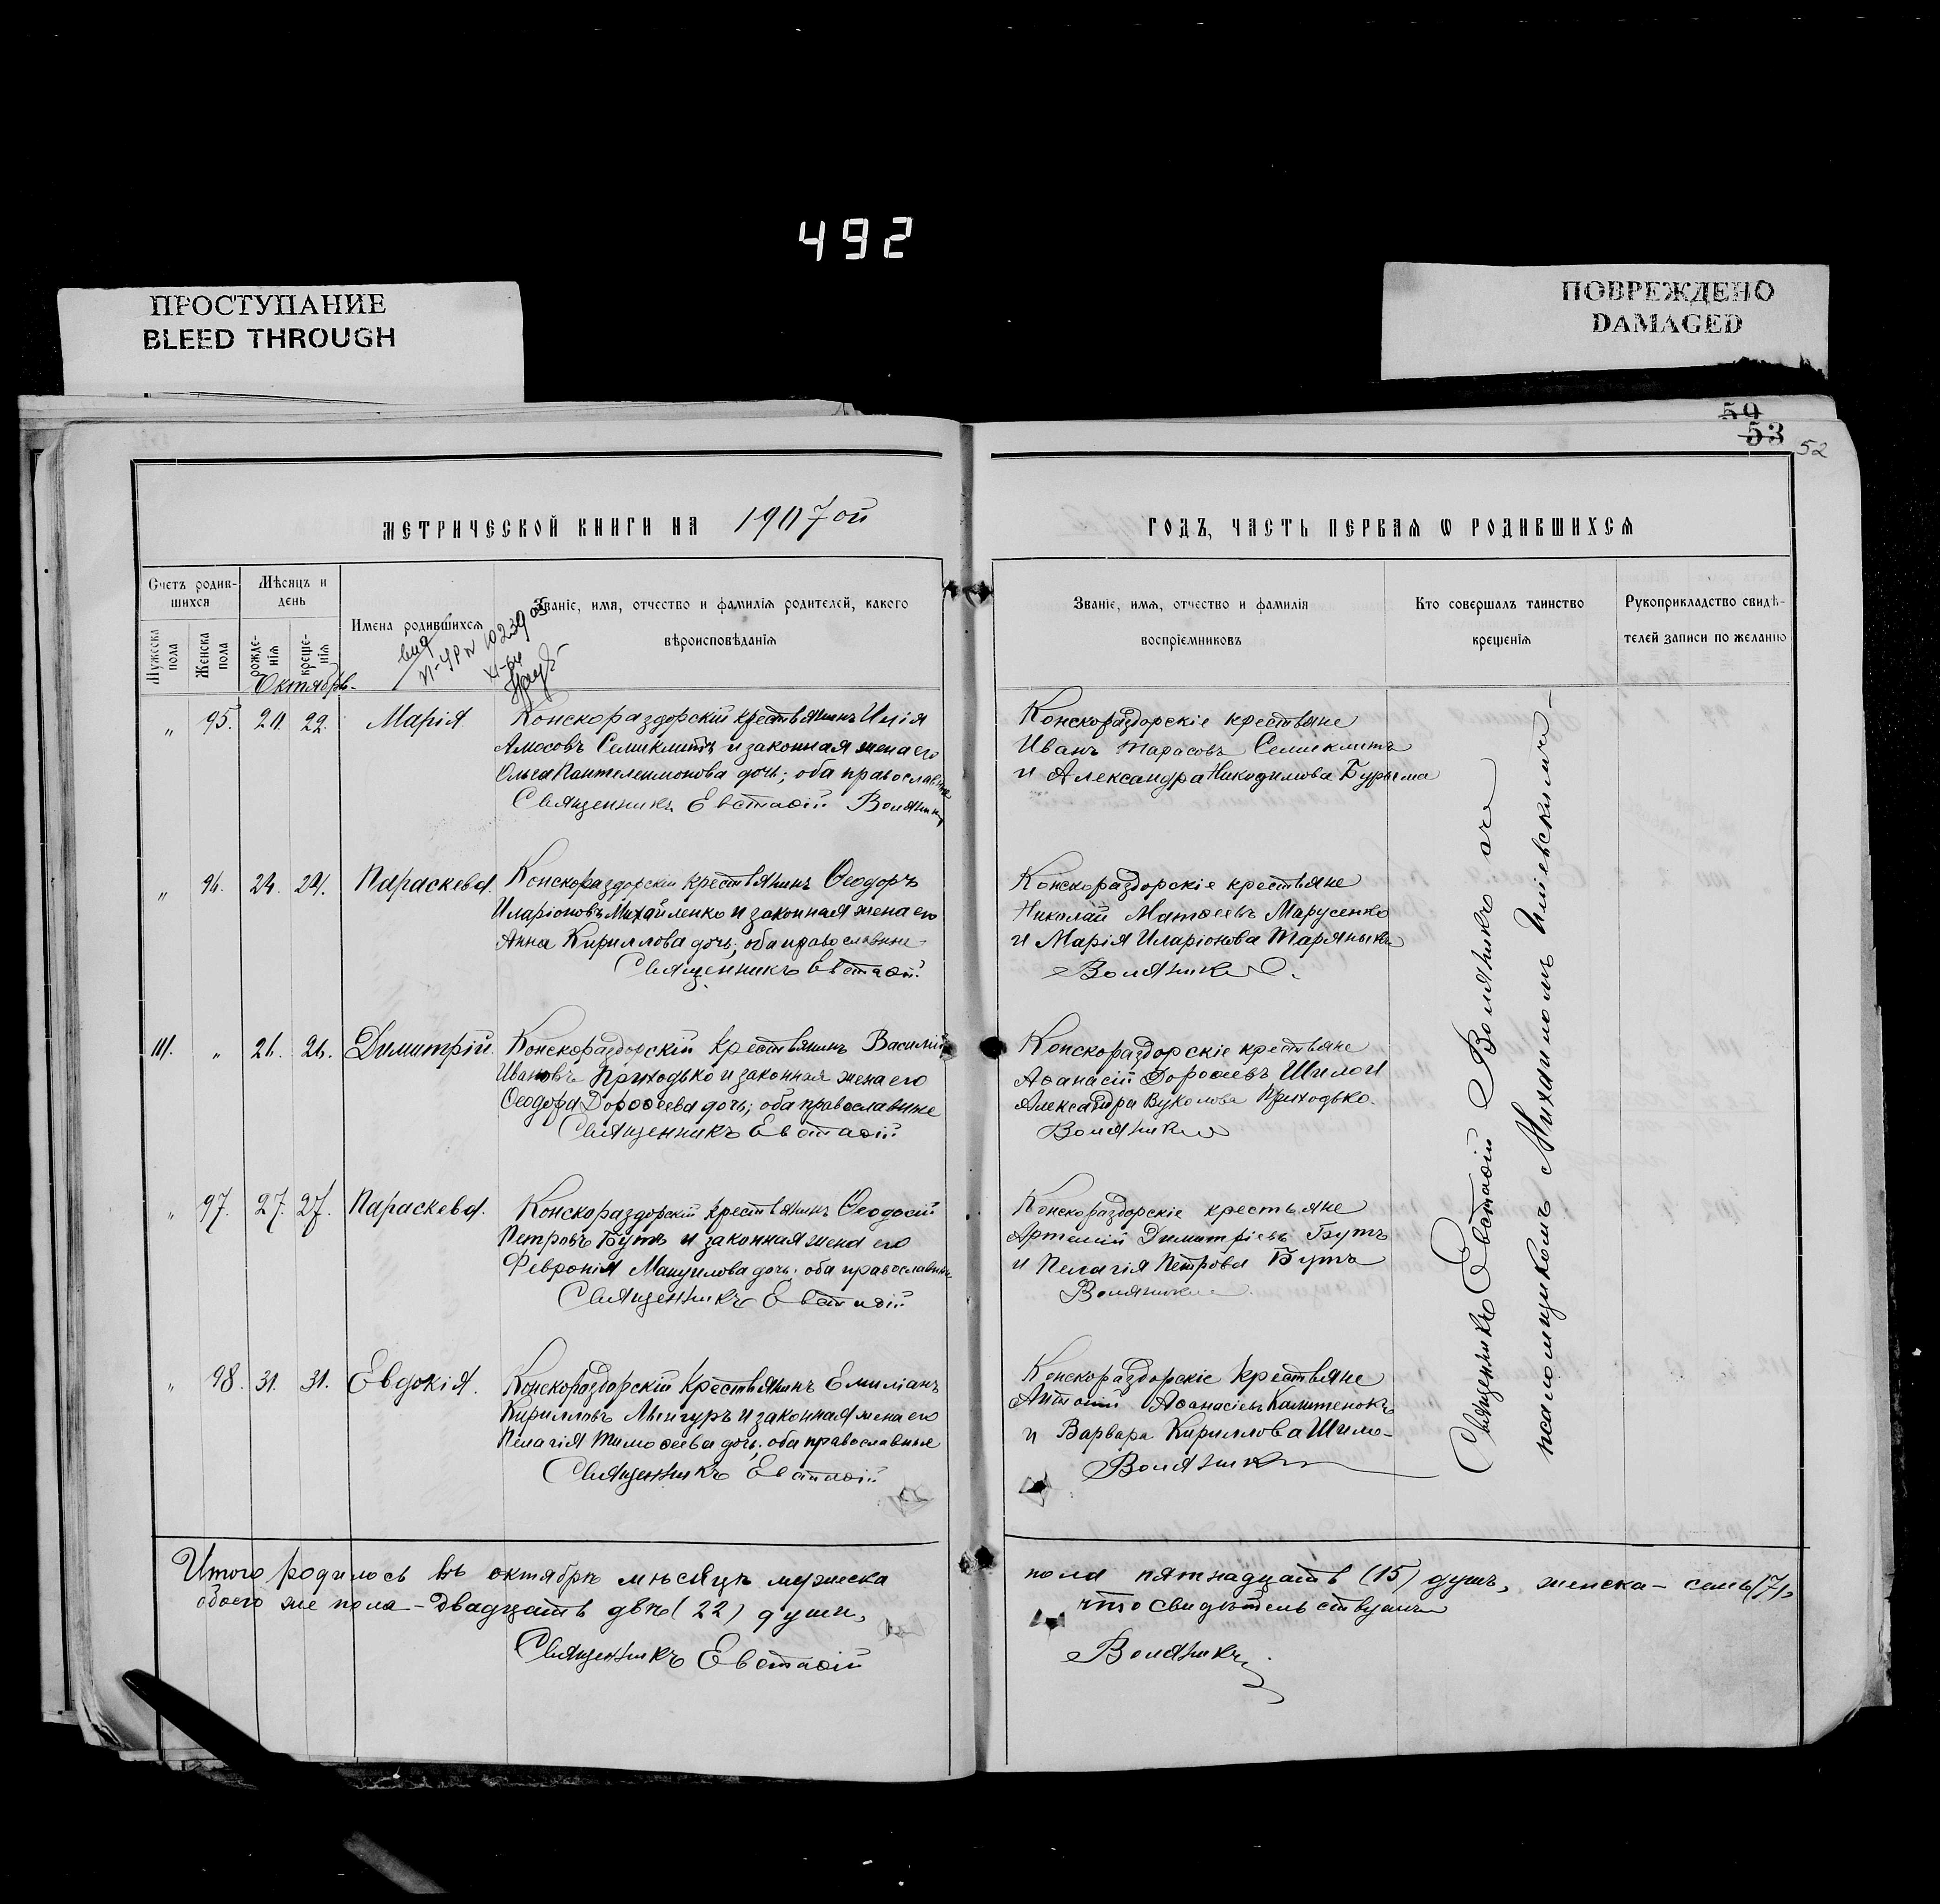 492
ПРОСТУПАНИЕ
BLEED THROUGH
ПОВРЕЖДЕНО
DAMAGED
59
53
52
МЕТРИЧЕСКОЙ КНИГИ НА 1907ой
ГОДЪ, ЧАСТЬ ПЕРВАЯ Ѡ РОДИВШИХСЯ
Счетъ родив-
шихся
Мужеска пола
Женска пола
Мѣсяцъ и
день
рожде-
нія
креще-
нія
Имена родившихся
Званіе, имя, отчество и фамилія родителей, какого
вѣроисповѣданія
Званіе, имя, отчество и фамилія
воспріемниковъ
Кто совершалъ таинство
крещенія
Рукоприкладство свидѣ-
телей записи по желанію
10239
Октябрь-
„ 95. 20. 22. Марія
Конскораздорскій крестьянинъ Илія
Амосовъ Семиклитъ и законная жена его
Ольга Пантелеимонова дочь; оба православные
Священникъ Евстаѳій Воляникъ
Конскораздорскіе крестьяне
Иванъ Тарасовъ Семиклитъ
и Александра Никодимова Бурыма
„ 96. 24. 24. Параскева.
Конскораздорскій крестьянинъ Ѳеодоръ
Иларіоновъ Михайленко и законная жена его
Анна Кириллова дочь; оба православные
Священникъ Евстаѳій
Конскораздорскіе крестьяне
Николай Матѳеевъ Марусенко
и Марія Иларіонова
Воляникъ
111. „ 26. 26. Димитрій.
Конскораздорскій крестьянинъ Василій
Ивановъ Приходько и законная жена его
Ѳеодора Дороѳеева дочь; оба православные
Священникъ Евстаѳій
Конскораздорскіе крестьяне
Аѳанасій Дороѳеевъ Шило и
Александра Вуколова Приходько.
Воляникъ
„ 97. 27. 27. Параскева.
Конскораздорскій крестьянинъ Ѳеодосій
Петровъ Бутъ и законная жена его
Февронія Мануилова дочь; оба православные
Священникъ Евстаѳій
Конскораздорскіе крестьяне
Артемій Димитріевъ Бутъ
и Пелагія Петрова Бутъ
Воляникъ
„ 98. 31. 31. Евдокія.
Конскораздорскій крестьянинъ Емиліанъ
Кирилловъ и законная жена его
Пелагія Тимоѳеева дочь; оба православные
Священникъ Евстаѳій
Конскораздорскіе крестьяне
Антоній Аѳанасіевъ
и Варвара Кириллова Шило-
Воляникъ
Священникъ Евстаѳій Воляникъ съ
псаломщикомъ Михаиломъ
Итого родилось въ октябрѣ мѣсяцѣ мужеска
пола пятнадцать (15) душъ, женска - семь (7),
обоего же пола - двадцать двѣ (22) души,
что свидѣтельствуемъ
Священникъ Евстаѳій
Воляникъ